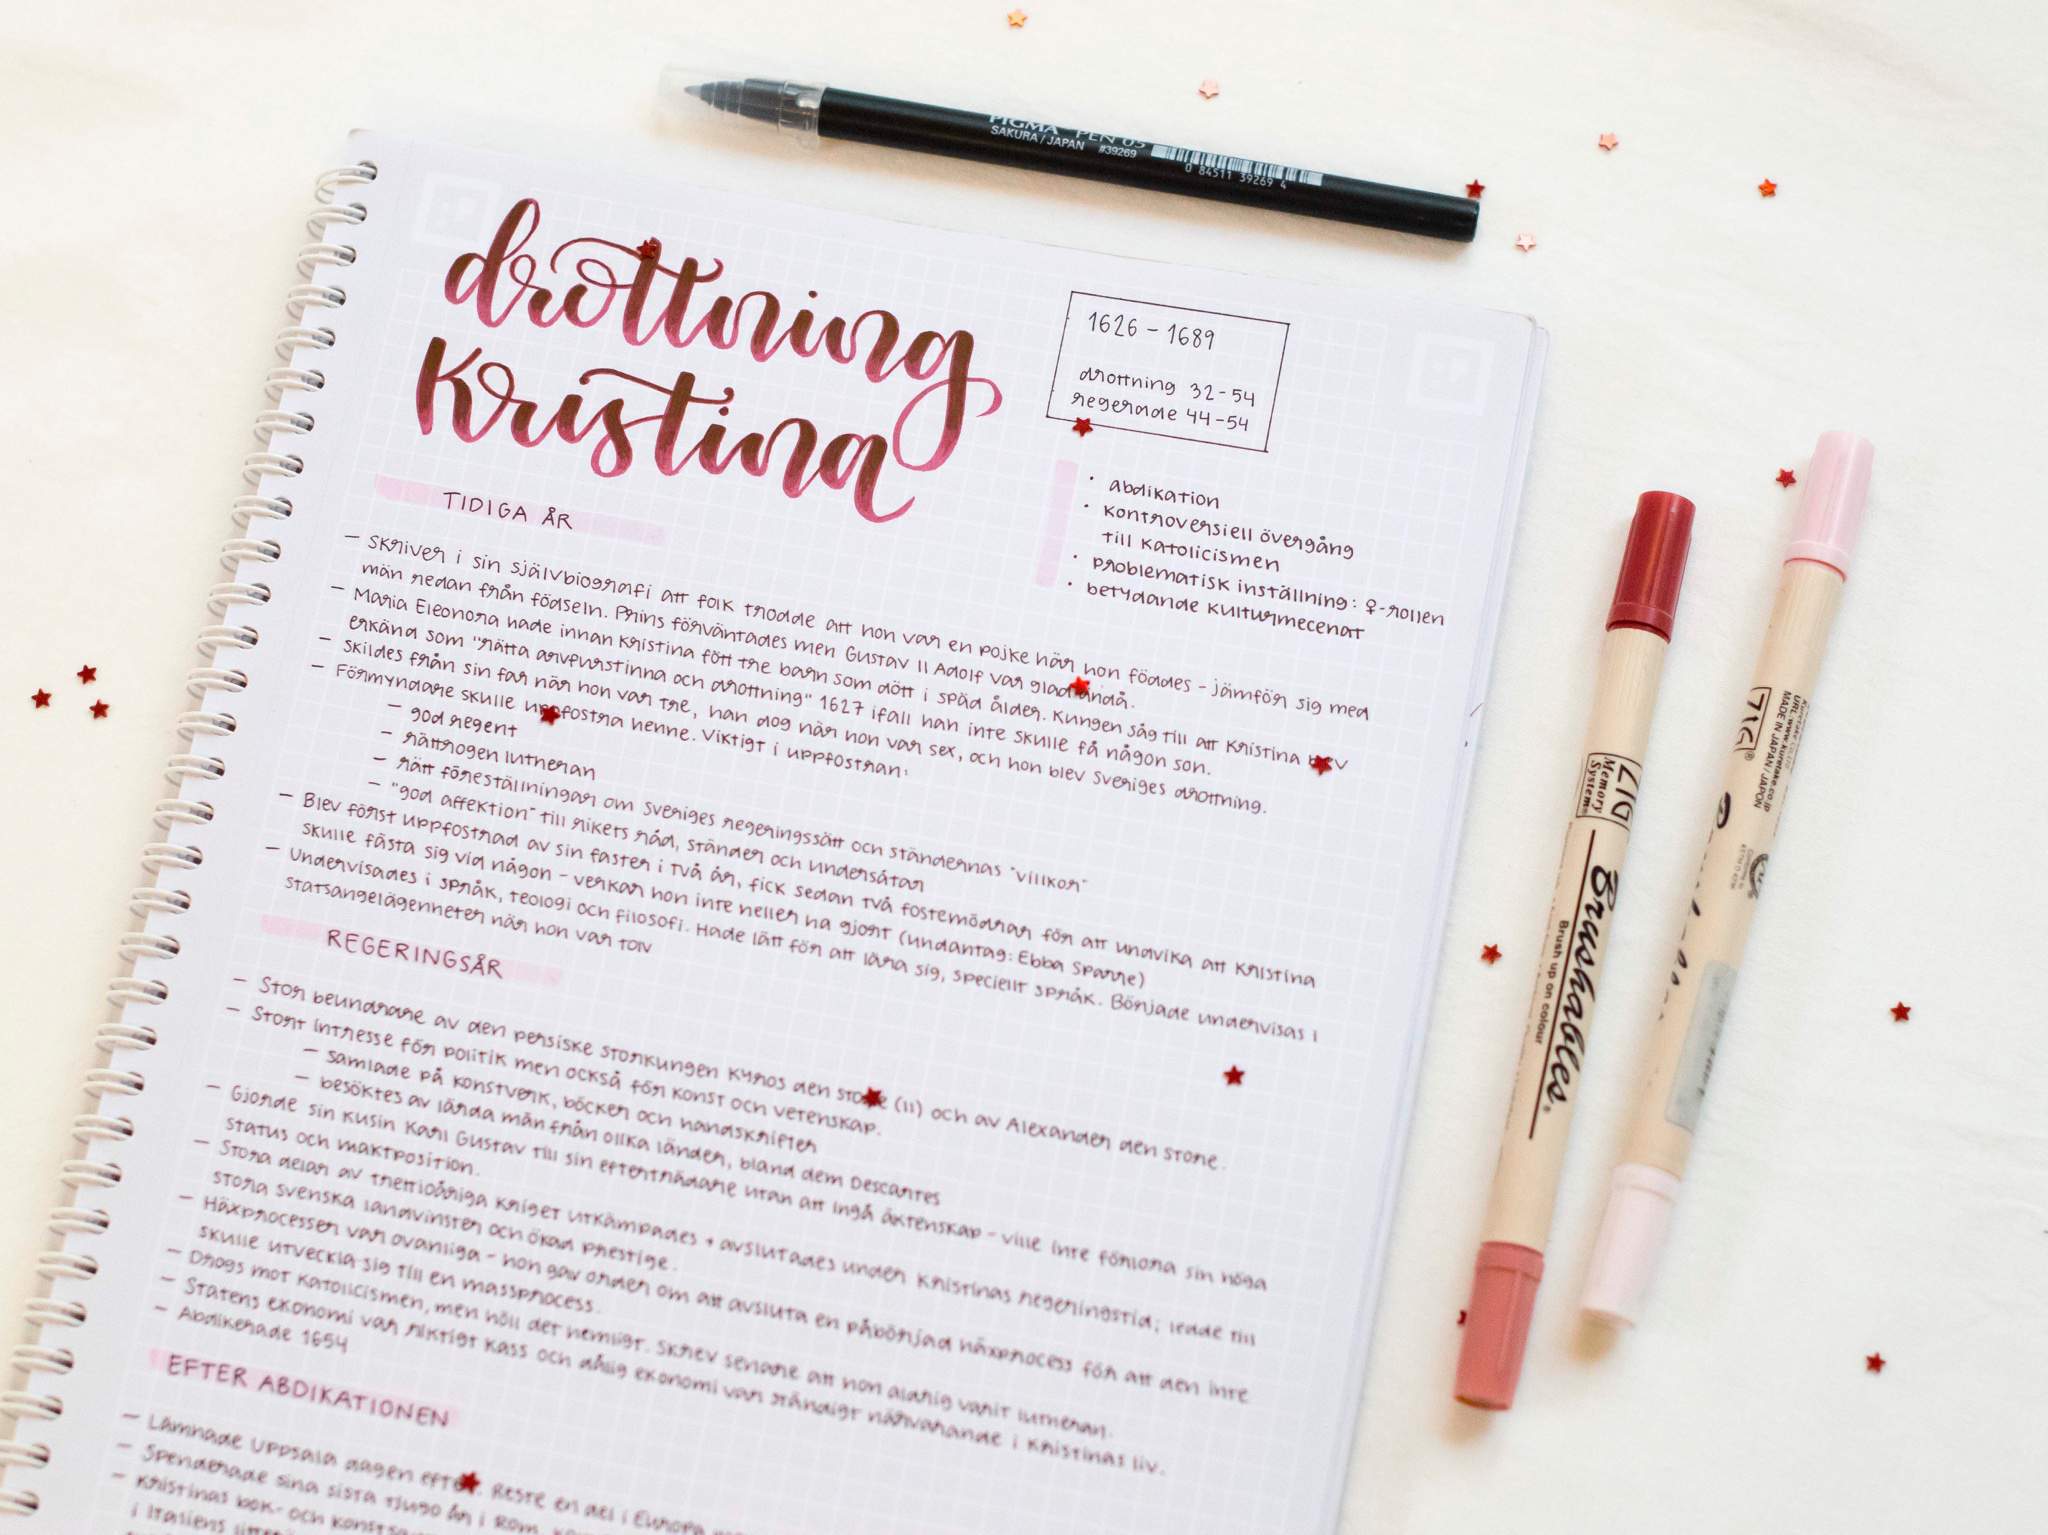 PIGMA PEN 05
SAKURA / JAPAN #39269
0 84511 39269 4
drottning
Kristina
1626 - 1689
drottning 32-54
regerade 44-54
• abdikation
• kontroversiell övergång
till katolicismen
• problematisk inställning: ♀-rollen
• betydande kulturmecenat
TIDIGA ÅR
- Skriver i sin självbiografi att folk trodde att hon var en pojke när hon föddes - jämför sig med
män redan från födseln. Prins förväntades men Gustav II Adolf var glad ändå.
- Maria Eleonora hade innan Kristina fött tre barn som dött i späd ålder. Kungen såg till att Kristina blev
erkänd som "rätta arvfurstinna och drottning" 1627 ifall han inte skulle få någon son.
- Skildes från sin far när hon var tre, han dog när hon var sex, och hon blev Sveriges drottning.
- Förmyndare skulle uppfostra henne. Viktigt i uppfostran:
- god regent
- rättrogen lutheran
- rätt föreställningar om Sveriges regeringssätt och ständernas "villkor"
- "god affektion" till rikets råd, ständer och undersåtar
- Blev först uppfostrad av sin faster i två år, fick sedan två fostermödrar för att undvika att Kristina
skulle fästa sig vid någon - verkar hon inte heller ha gjort (undantag: Ebba Sparre)
- Undervisades i språk, teologi och filosofi. Hade lätt för att lära sig, speciellt språk. Började undervisas i
statsangelägenheter när hon var tolv
REGERINGSÅR
- Stor beundrare av den persiske storkungen Kyros den store (II) och av Alexander den store.
- Stort intresse för politik men också för konst och vetenskap.
- samlade på konstverk, böcker och handskrifter
- besöktes av lärda män från olika länder, bland dem Descartes
- Gjorde sin kusin Karl Gustav till sin efterträdare utan att ingå äktenskap - ville inte förlora sin höga
status och maktposition.
- Stora delar av trettioåriga kriget utkämpades + avslutades under Kristinas regeringstid; ledde till
stora svenska landvinster och ökad prestige.
- Häxprocesser var ovanliga - hon gav order om att avsluta en påbörjad häxprocess för att den inte
skulle utveckla sig till en massprocess.
- Drogs mot katolicismen, men höll det hemligt. Skrev senare att hon aldrig varit lutheran.
- Statens ekonomi var riktigt kass och dålig ekonomi var ständigt närvarande i Kristinas liv.
- Abdikerade 1654
EFTER ABDIKATIONEN
- Lämnade Uppsala dagen efter. Reste en del i Europa
- Spenderade sina sista tjugo år i Rom.
- Kristinas bok- och
i Italiens
ZIG
Memory
System®
Brushables®
Brush up on colour
ZIG®
MADE IN JAPAN/JAPON
URL:www.kuretake.co.jp